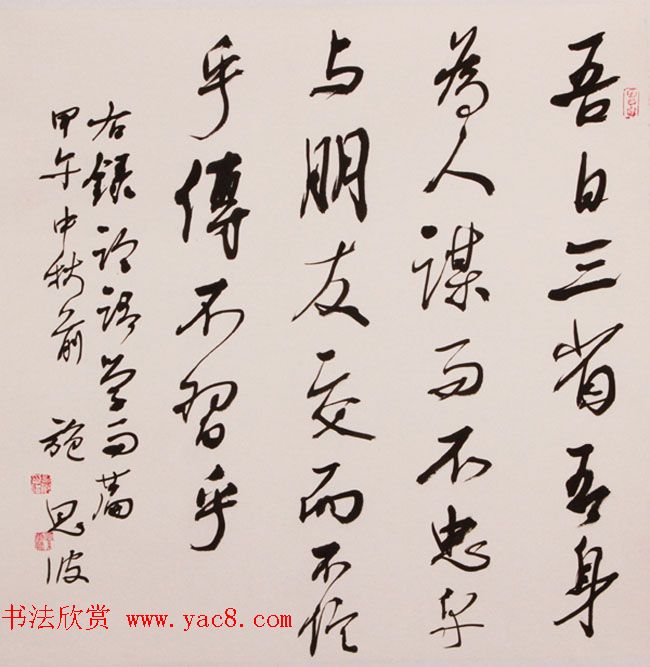 吾日三省吾身
為人謀而不忠乎
与朋友交而不信
乎傳不習乎
右録论語学而篇
甲午中秋前 施思波
书法欣赏 www.yac8.com